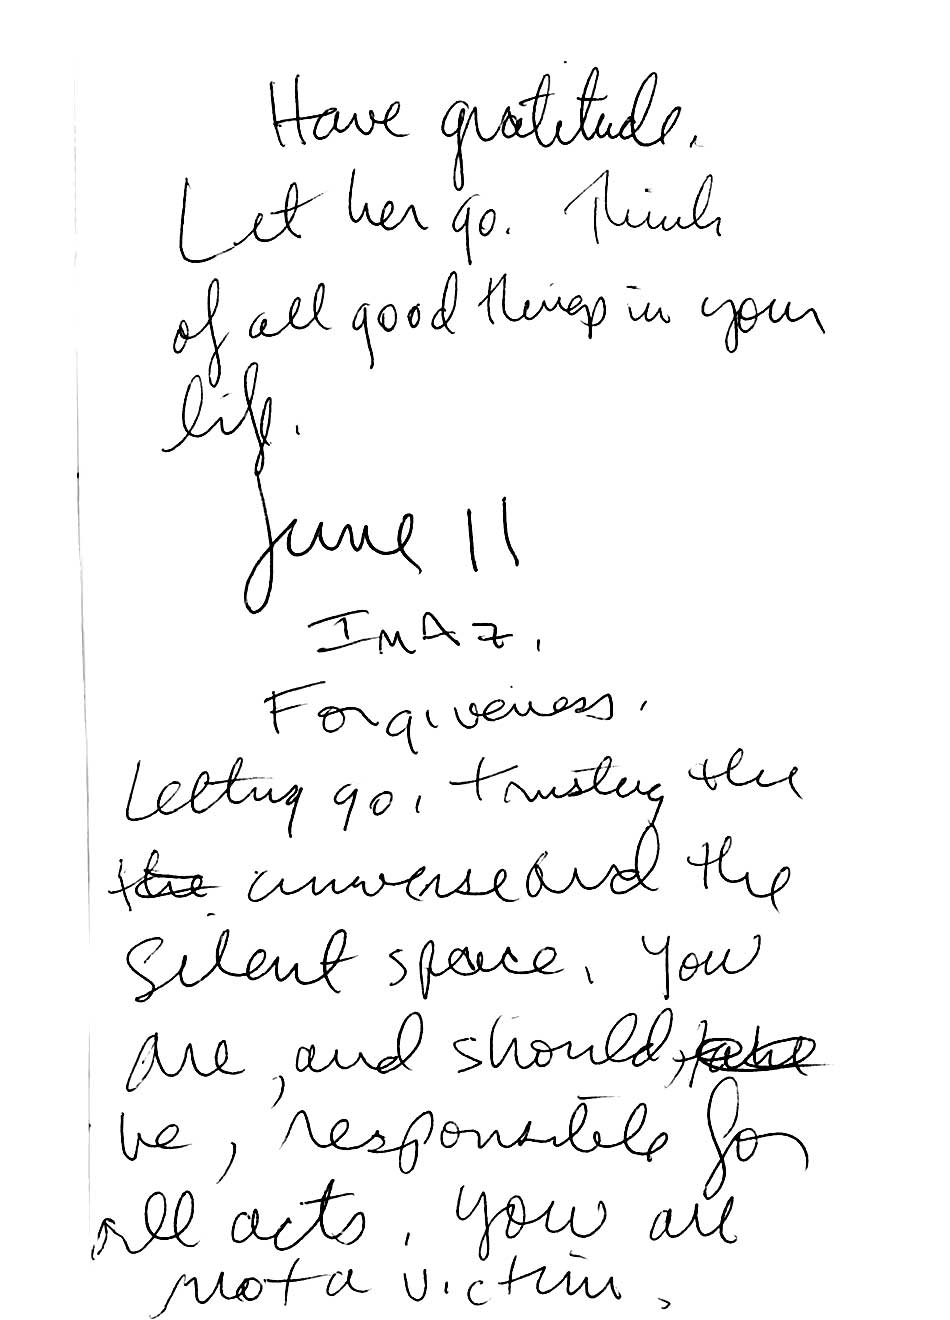 Have gratitude.
Let her go. Think
of all good things in your
life.
June 11
In AZ.
Forgiveness.
Letting go, trusting the
the universe and the
Silent space. You
are, and should, take
be, responsible for
all acts. You are
not a victim.